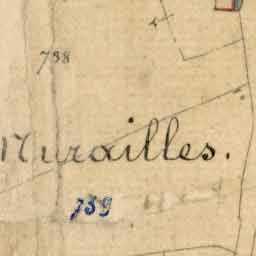 738
Murailles.
739